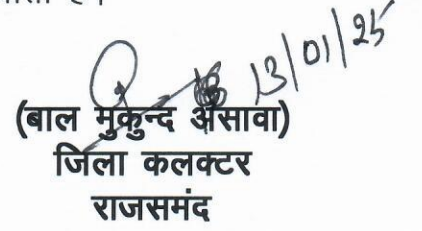 13/01/25
(बाल मुकुन्द असावा)
जिला कलक्टर
राजसमंद